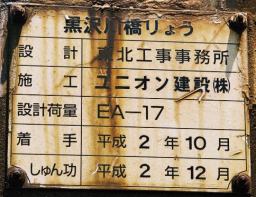 黒沢川橋りょう
設計 東北工事事務所
施工 ユニオン建設(株)
設計荷重 EA-17
着手 平成2年10月
しゅん功 平成2年12月